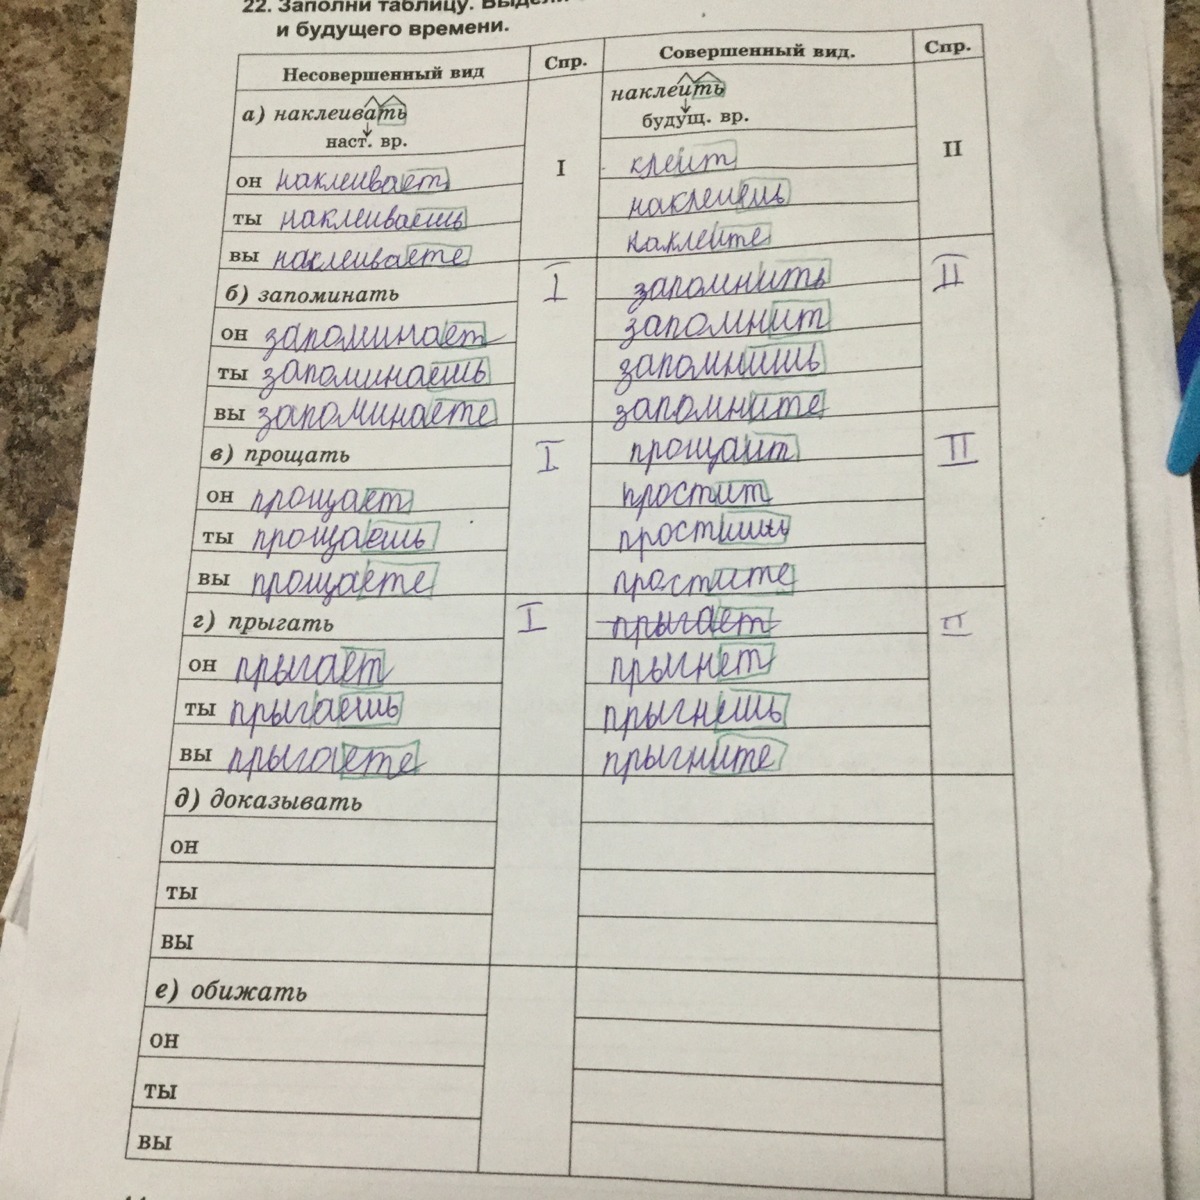 22. Заполни таблицу. Выдели
и будущего времени.
Несовершенный вид Спр. Совершенный вид. Спр.
а) наклеивать I наклеить II
наст. вр. будущ. вр.
он наклеивает клеит
ты наклеиваешь наклеишь
вы наклеиваете наклеите
б) запоминать I запомнить II
он запоминает запомнит
ты запоминаешь запомнишь
вы запоминаете запомните
в) прощать I прощаит II
он прощает простит
ты прощаешь простишь
вы прощаете простите
г) прыгать I прыгает II
он прыгает прыгнет
ты прыгаешь прыгнешь
вы прыгаете прыгните
д) доказывать
он
ты
вы
е) обижать
он
ты
вы